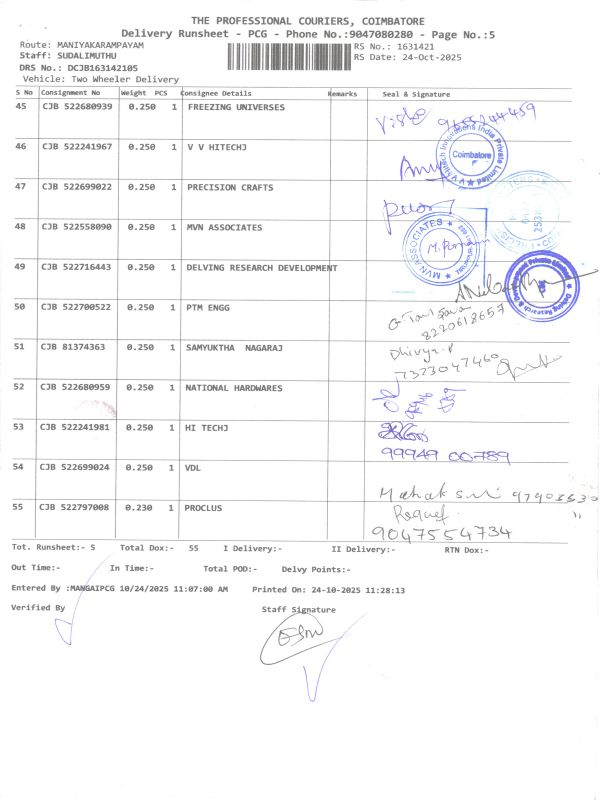 THE PROFESSIONAL COURIERS, COIMBATORE
Delivery Runsheet - PCG - Phone No.:9047080280 - Page No.:5
Route: MANIYAKARAMPAYAM RS No.: 1631421
Staff: SUDALIMUTHU RS Date: 24-Oct-2025
DRS No.: DCJB163142105
Vehicle: Two Wheeler Delivery
S No Consignment No Weight PCS Consignee Details Remarks Seal & Signature
45 CJB 522680939 0.250 1 FREEZING UNIVERSES
46 CJB 522241967 0.250 1 V V HITECHJ
Coimbatore
47 CJB 522699022 0.250 1 PRECISION CRAFTS
48 CJB 522558090 0.250 1 MVN ASSOCIATES
MVN ASSOCIATES
49 CJB 522716443 0.250 1 DELVING RESEARCH DEVELOPMENT
50 CJB 522700522 0.250 1 PTM ENGG
8220618657
51 CJB 81374363 0.250 1 SAMYUKTHA NAGARAJ
Dhivya.P
7373047460
52 CJB 522680959 0.250 1 NATIONAL HARDWARES
53 CJB 522241981 0.250 1 HI TECHJ
99949 00789
54 CJB 522699024 0.250 1 VDL
55 CJB 522797008 0.230 1 PROCLUS
9047554734
Tot. Runsheet:- 5 Total Dox:- 55 I Delivery:- II Delivery:- RTN Dox:-
Out Time:- In Time:- Total POD:- Delvy Points:-
Entered By :MANGAIPCG 10/24/2025 11:07:00 AM Printed On: 24-10-2025 11:28:13
Verified By Staff Signature